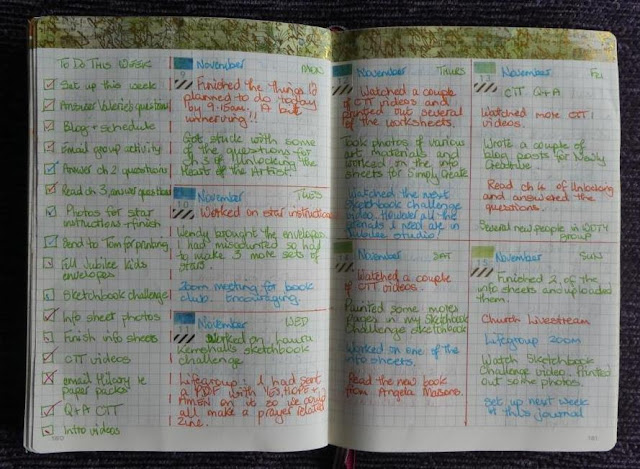 To Do This Week
Set up this week
Answer Valerie's questions
Blog + schedule
Email group activity
Answer ch 2 questions
Read ch 3, answer questions
Photos for star
instructions + finish
Send to Tom for printing
Fill Jubilee Kids
envelopes
Sketchbook challenge
Info sheet photos
Finish info sheets
CIT videos
email Hilary re
paper packs
Q + A CIT
Intro videos
180
9 November MON
Finished the things I'd
planned to do today
by 9.15am. A bit
unnerving!!
Got stuck with some
of the questions for
ch 3 of Unlocking the
Heart of the Artist.
10 November TUES
Worked on star instructions
Wendy brought the envelopes.
I had miscounted so had
to make 3 more sets of
stars.
Zoom meeting for book
club. Encouraging.
11 November WED
Worked on Laura
Kemshall's sketchbook
challenge
Lifegroup. I had sent
a PDF with YES, HOPE +
AMEN on it so we could
all make a prayer related
zine.
November THURS
Watched a couple
of CIT videos and
printed out several
of the worksheets.
Took photos of various
art materials and
worked on the info
sheets for Simply Create
Watched the next
sketchbook challenge
video. However all the
materials I need are in
Jubilee studio!
13 November FRI
CIT Q + A
Watched more CIT
videos.
Wrote a couple of
blog posts for Newly
Creative.
Read ch 4 of Unlocking
and answered the
questions.
Several new people in
group
14 November SAT
Watched a couple
of CIT videos.
Painted some more
pages in my sketchbook
challenge sketchbook
Worked on one of the
info sheets.
Read the new book
from Angela
15 November SUN
Finished 2 of the
info sheets and uploaded
them
Church Livestream
Lifegroup Zoom
Watch Sketchbook
Challenge video. Printed
out some photos.
Set up next week
in this journal
181